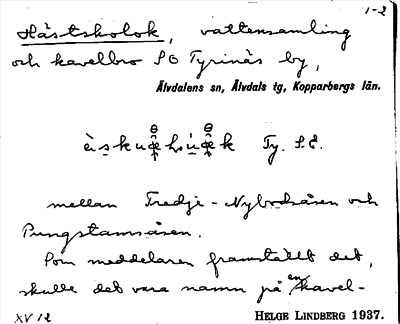 1-2
Hästskolok, vattensamling
och kavelbro SO Tyrinäs by,
Älvdalens sn, Älvdals tg, Kopparbergs län.
Ty. S.E.
mellan Tredje-Nybodåsen och
Pungstamsåsen.
Som meddelaren framställt det,
skulle det vara namn på en kavel-
XV 12 HELGE LINDBERG 1937.